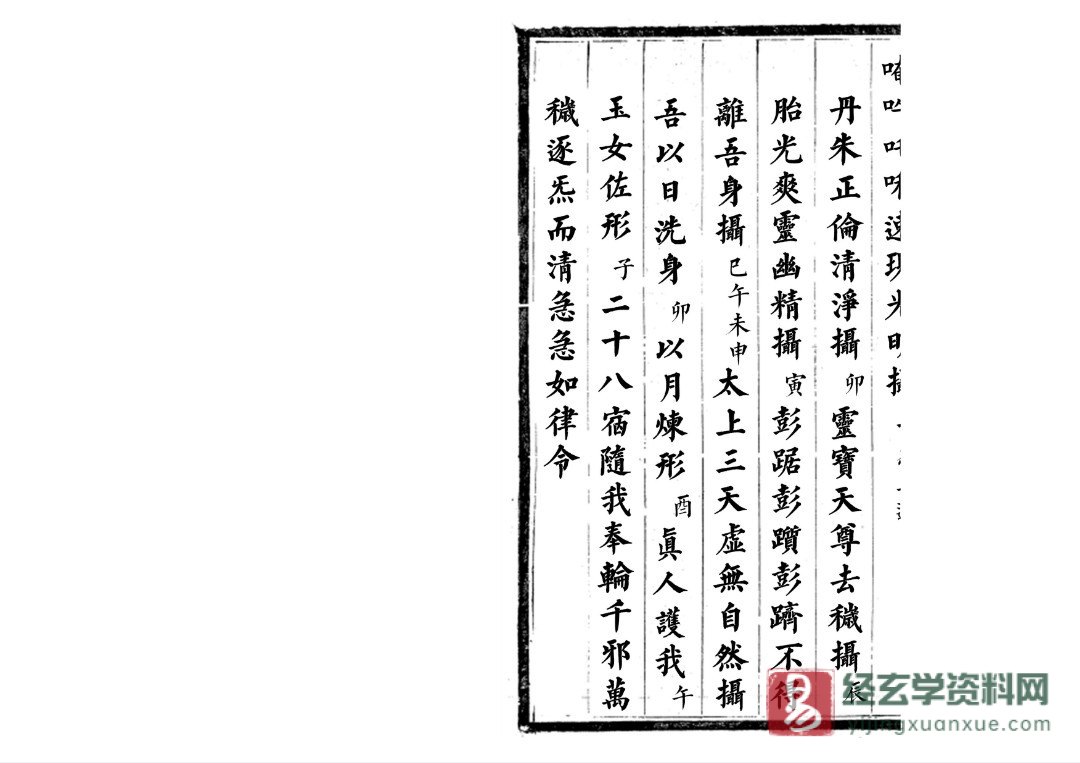 丹朱正倫清淨攝卯靈寶天尊去穢攝辰
胎光爽靈幽精攝寅彭踞彭躓彭躋不得
離吾身攝巳午未申太上三天虛無自然攝
吾以日洗身卯以月煉形酉眞人護我午
玉女佐形子二十八宿隨我奉輪千邪萬
穢逐炁而清急急如律令
经玄学资料网
yijingxuanxue.com